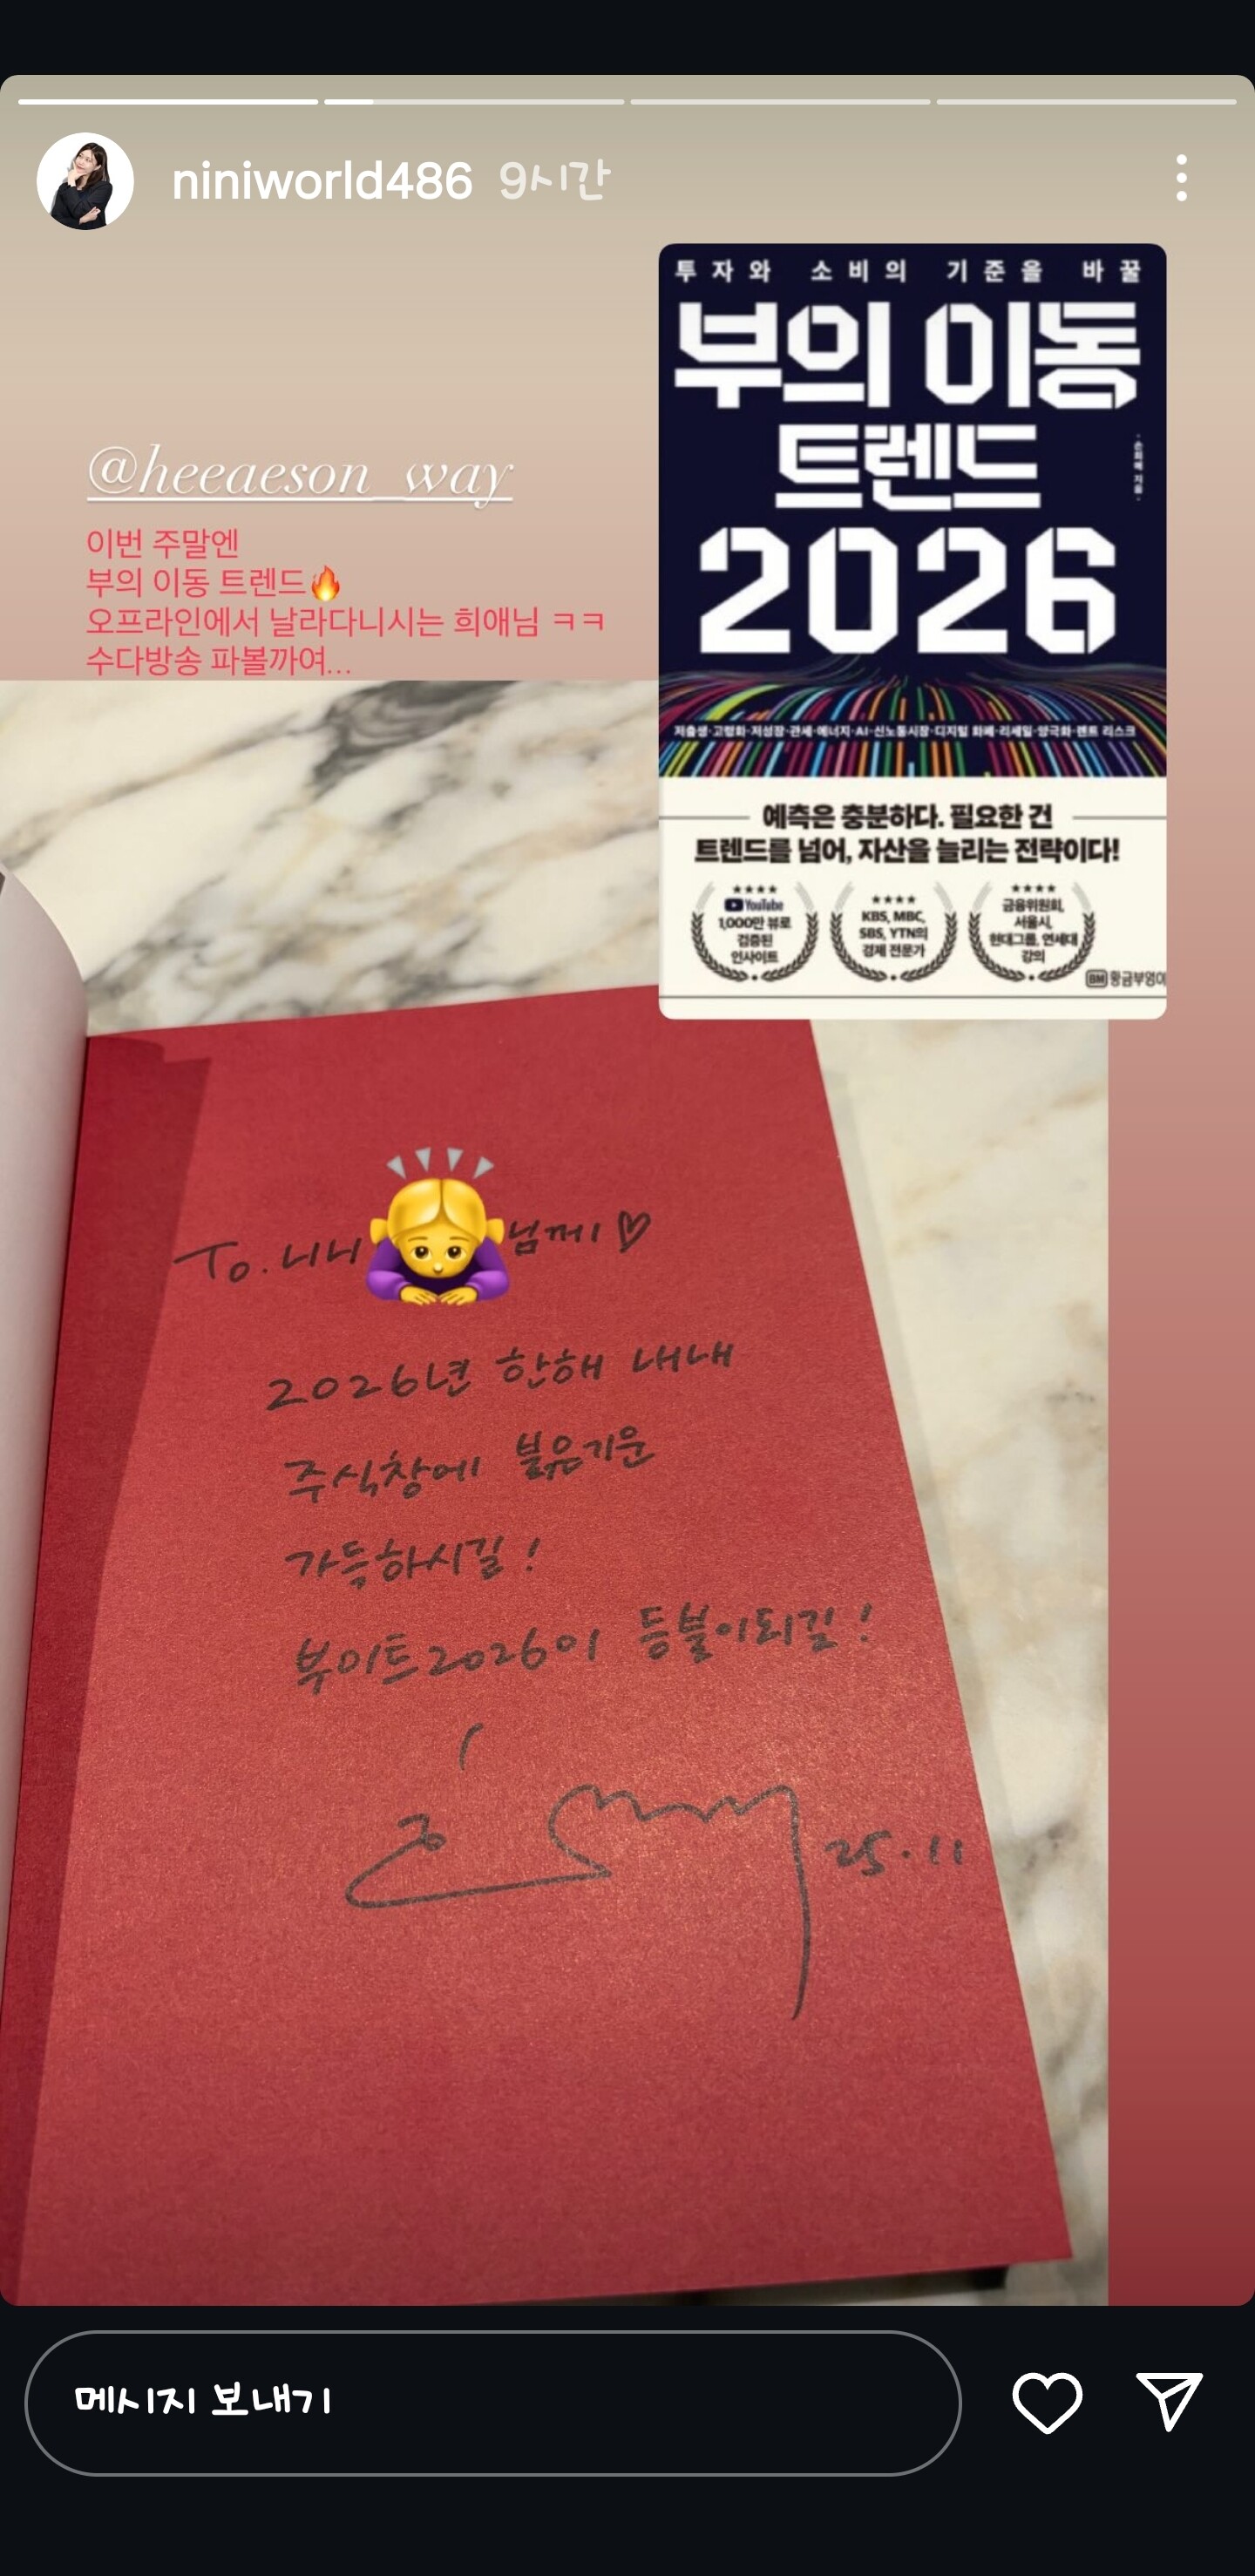 niniworld486 9시간
투자와 소비의 기준을 바꿀
부의 이동
트렌드
2026
손희애 지음
저출생·고령화·저성장·관세·에너지·AI·신노동시장·디지털 화폐·리세일·양극화·렌트 리스크
예측은 충분하다. 필요한 건
트렌드를 넘어, 자산을 늘리는 전략이다!
YouTube
1,000만 뷰로
검증된
인사이트
KBS, MBC,
SBS, YTN의
경제 전문가
금융위원회,
서울시,
현대그룹, 연세대
강의
BM 황금부엉이
@heeaeson_way
이번 주말엔
부의 이동 트렌드🔥
오프라인에서 날라다니시는 희애님 ㅋㅋ
수다방송 파볼까여...
To. 니니 님께♡
2026년 한해 내내
주식창에 붉은기운
가득하시길!
부이트2026이 등불이되길!
25.11
메시지 보내기